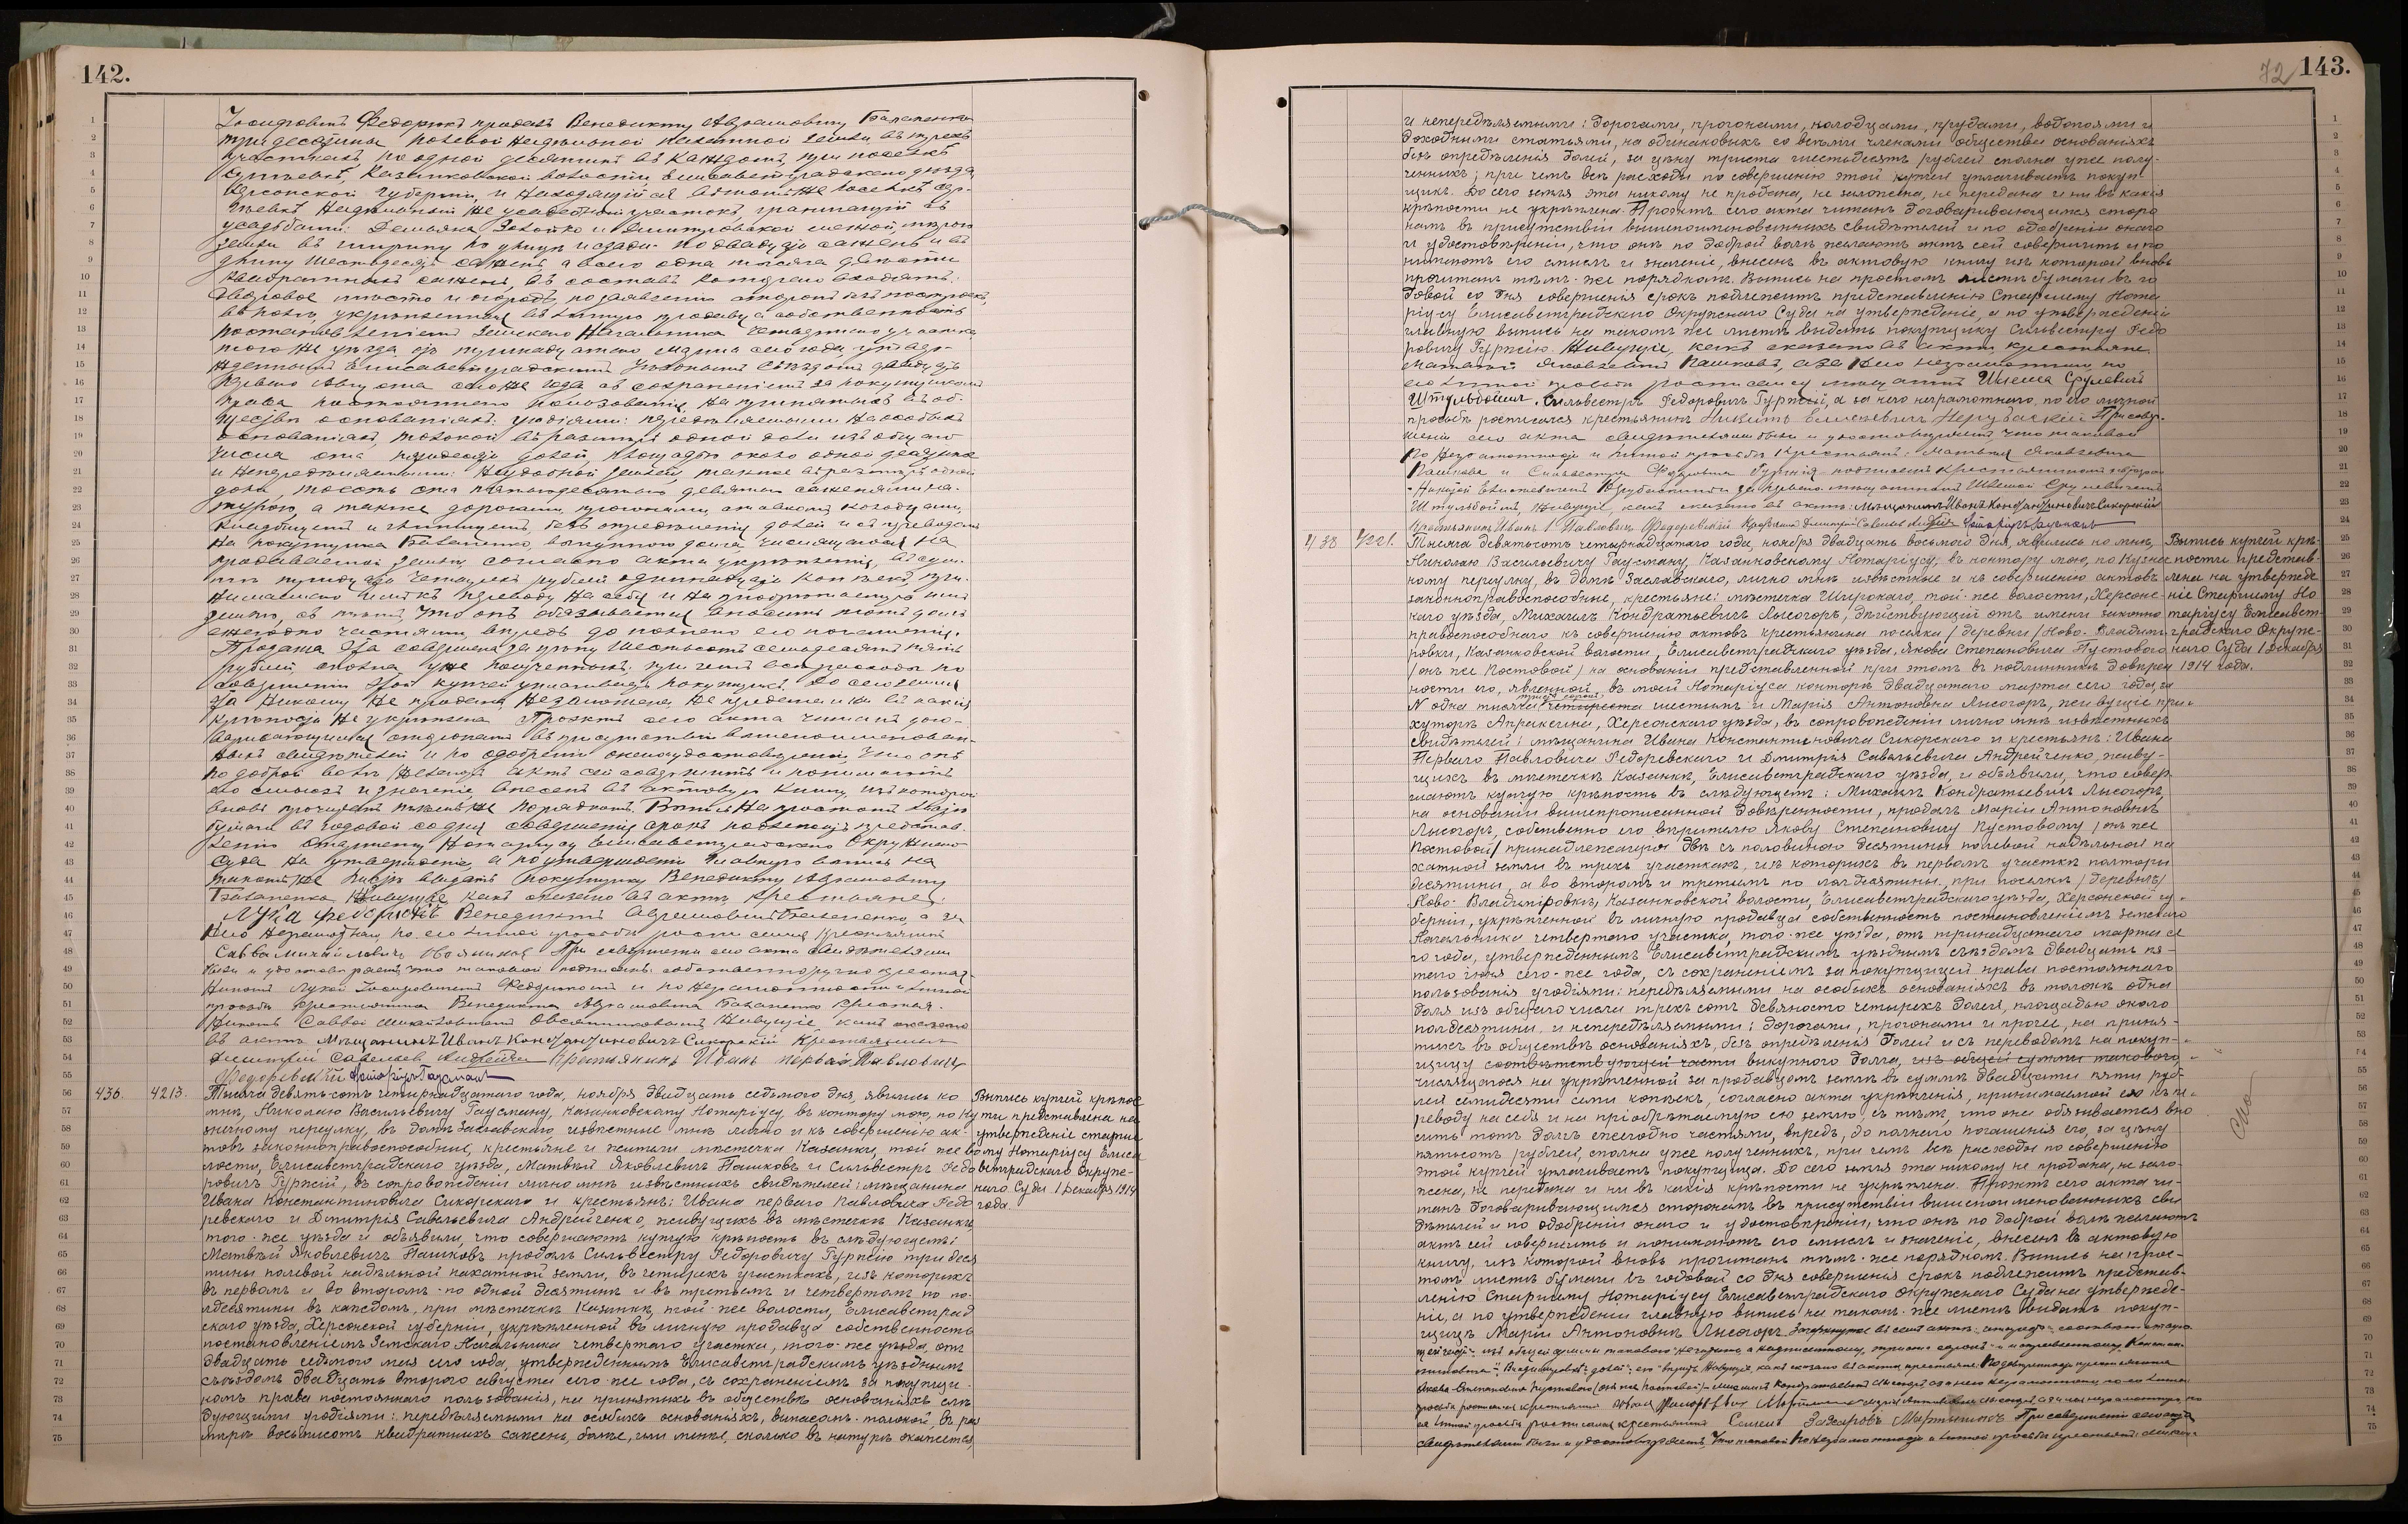 142.
Іосифовичъ Федорюкъ продалъ Венедикту Абрамовичу Баланенко
три десятины полевой надѣльной пахатной земли въ трехъ
участкахъ, по одной десятинѣ въ каждомъ, при поселкѣ
Казанковской волости Елисаветградскаго уѣзда,
Херсонской губерніи, и находящійся въ томъ-же поселкѣ
надѣльный же усадебный участокъ, граничащій съ
усадьбами: Демьяна и межой, мѣрою
земли въ ширину по улицѣ и сзади по двадцать саженъ и въ
длину шестьдесятъ саженъ, а всего одна тысяча двѣсти
квадратныхъ саженъ, въ составъ котораго входятъ:
дворовое мѣсто и огородъ, по заявленію сторонъ безъ построекъ,
укрѣпленныя въ личную продавца собственность
постановленіемъ Земскаго Начальника четвертаго участка
того-же уѣзда отъ тринадцатаго марта сего года утвер-
жденнымъ Елисаветградскимъ Уѣзднымъ Съѣздомъ двадцать
перваго августа сего же года съ сохраненіемъ за покупщикомъ
права постояннаго пользованія, на принятыхъ въ об-
ществѣ основаніяхъ: угодіями: передѣляемыми на особыхъ
основаніяхъ, толокой въ размѣрѣ одной доли изъ общаго
числа ста долей, площадью около одной десятины
и непередѣляемыми: неудобной землей, также въ размѣрѣ одной
доли, то есть ста пятьюдесятью девятью саженями на-
турою, а также дорогами, прогонами,
кладбищемъ и безъ опредѣленія долей и съ переводомъ
на покупщика Баланенко, выкупного долга, числящагося на
продаваемой землѣ согласно акта укрѣпленія, въ сум-
мѣ тридцать четырехъ рублей одиннадцать копѣекъ, при-
нимаемаго имъ къ переводу на себя и на пріобрѣтаемую имъ
землю, съ тѣмъ, что онъ обязывается вносить тотъ долгъ
ежегодно частями, впредь до полнаго его погашенія.
Продажа эта совершена за цѣну шестьсотъ семьдесятъ пять
рублей, сполна уже полученныхъ, при чемъ всѣ расходы по
совершенію этой купчей уплачиваетъ покупщикъ. До сего земля
эта никому не продана, не заложена, не передана и ни въ какія
крѣпости не укрѣплена. Проэктъ сего акта читанъ дого-
варивающимся сторонамъ въ присутствіи вышепоименован-
ныхъ свидѣтелей и по одобреніи онаго и удостовѣреніи, что онѣ
по доброй волѣ желаютъ актъ сей совершить и понимаютъ
его смыслъ и значеніе, внесенъ въ актовую книгу, изъ которой
вновь прочитанъ тѣмъ-же порядкомъ. Выпись на простомъ листѣ
бумаги въ годовой со дня совершенія срокъ подлежитъ представ-
ленію Старшему Нотаріусу Елисаветградскаго Окружнаго
Суда на утвержденіе, а по утвержденіи главную выпись на
такомъ же листѣ выдать покупщику Венедикту Абрамовичу
Баланенко. Живущіе, какъ сказано въ актѣ, крестьяне:
Лука Федорюкъ Венедиктъ Абрамовичъ Баланенко а за
него неграмотнаго, по его личной просьбѣ росписался крестьянинъ
Савва Михайловичъ При совершеніи сего акта свидѣтелями
были и удостовѣряемъ, что таковой подписанъ: собственноручно крестья-
ниномъ Лукой Іосифовичемъ Федорюкомъ и по неграмотности и личной
просьбѣ крестьянина Венедикта Абрамовича Баланенко крестья-
ниномъ Саввой Михайловичемъ Овсянниковымъ. Живущіе, какъ сказано
въ актѣ: Мѣщанинъ Иванъ Константиновичъ Сикорскій Крестьянинъ
Дмитрій Савельевъ Андрейченко Крестьянинъ Иванъ первый Павловичъ
Федоревскій Нотаріусъ Гаусманъ
436. 4213. Тысяча девять-сотъ четырнадцатаго года, ноября двадцать седьмого дня, явились ко
мнѣ, Николаю Васильевичу Гаусману, Казанковскому Нотаріусу, въ контору мою, по Ку
знечному переулку, въ домѣ Заславскаго, извѣстные мнѣ лично и къ совершенію ак-
товъ законноправоспособные, крестьяне и жители мѣстечка Казанки, той же во
лости, Елисаветградскаго уѣзда, Матвѣй Яковлевичъ Пашковъ и Сильвестръ Федо
ровичъ Гуржій, въ сопровожденіи лично мнѣ извѣстныхъ свидѣтелей: мѣщанина
Ивана Константиновича Сикорскаго и крестьянъ: Ивана перваго Павловича Федо
ревскаго и Дмитрія Савельевича Андрейченко, живущихъ въ мѣстечкѣ Казанкѣ
того-же уѣзда и объявили, что совершаютъ купчую крѣпость въ слѣдующемъ:
Матвѣй Яковлевичъ Пашковъ, продалъ Сильвестру Федоровичу Гуржію три деся
тины полевой надѣльной пахатной земли, въ четырехъ участкахъ, изъ которыхъ
въ первомъ и во второмъ-по одной десятинѣ и въ третьемъ и четвертомъ по по-
лдесятины въ каждомъ, при мѣстечкѣ Казанкѣ, той-же волости, Елисаветград
скаго уѣзда, Херсонской губерніи, укрѣпленной въ личную продавца собственность
постановленіемъ Земскаго Начальника четвертаго участка, того-же уѣзда, отъ
двадцать седьмого мая сего года, утвержденнымъ Елисаветградскимъ уѣзднымъ
съѣздомъ двадцать второго августа сего-же года, съ сохраненіемъ за покупщи-
комъ права постояннаго пользованія, на принятыхъ въ обществѣ основаніяхъ слѣ
дующими угодіями: передѣляемыми на особыхъ основаніяхъ, выпасомъ-толокой, въ раз
мѣрѣ восьмисотъ квадратныхъ саженъ, болѣе, или менѣе, сколько въ натурѣ окажется,
Выпись купчей крѣпос
ти представлена на
утвержденіе старше
му Нотаріусу Елиса
ветградскаго Окруж-
наго Суда 1 Декабря 1914
года.
72 143.
и непередѣляемыми: дорогами, прогонами, колодцами, прудами, водопоями и
доходными статьями, на одинаковыхъ со всѣми членами общества основаніяхъ
безъ опредѣленія долей, за цѣну триста шестьдесятъ рублей сполна уже полу-
ченныхъ; при чемъ всѣ расходы по совершенію этой купчей уплачиваетъ покуп
щикъ. До сего земля эта никому не продана, не заложена, не передана и ни въ какія
крѣпости не укрѣплена. Проэктъ сего акта читанъ договаривающимся сторо
намъ въ присутствіи вышепоименованныхъ свидѣтелей и по одобреніи онаго
и удостовѣреніи, что онѣ по доброй волѣ желаютъ актъ сей совершить и по
нимаютъ его смыслъ и значеніе, внесенъ въ актовую книгу изъ которой вновь
прочитанъ тѣмъ-же порядкомъ. Выпись на простомъ листѣ бумаги въ го
довой со дня совершенія срокъ подлежитъ представленію Старшему Нота
ріусу Елисаветградскаго Окружнаго Суда на утвержденіе, а по утвержденіи
главную выпись на такомъ же листѣ выдать покупщику Сильвестру Федо
ровичу Гуржію. Живущіе, какъ сказано въ актѣ, крестьяне:
Матвѣй Яковлевичъ Пашковъ, а за него неграмотнаго, по
его личной просьбѣ росписался мѣщанинъ Шлема Срулевичъ
Штульбоймъ. Сильвестръ Федоровичъ Гуржій, а за него неграмотнаго, по его личной
просьбѣ росписался крестьянинъ Никита Елисеевичъ При совер-
шеніи сего акта свидѣтелями были и удостовѣряемъ, что таковой
по неграмотности и личной просьбѣ крестьянъ: Матвѣя Яковлевича
Пашкова и Сильвестра Федоровича Гуржія-подписанъ крестьяниномъ
Никитой Елисеевичемъ за перваго мѣщаниномъ Шлемой Срулевичемъ
Штульбоймъ, Живущіе, какъ сказано въ актѣ: Мѣщанинъ Иванъ Константиновичъ Сикорскій
Крестьянинъ Иванъ 1 Павловичъ Федоревскій Крестьянинъ Дмитрій Савельевъ Андрейченко Нотаріусъ Гаусманъ
438 4221. Тысяча девятьсотъ четырнадцатаго года, ноября двадцать восьмого дня, явились ко мнѣ,
Николаю Васильевичу Гаусману, Казанковскому Нотаріусу, въ контору мою, по Кузнеч
ному переулку, въ домѣ Заславскаго, лично мнѣ извѣстные и къ совершенію актовъ
законноправоспособные, крестьяне: мѣстечка Широкаго, той-же волости, Херсонс-
каго уѣзда, Михаилъ Кондратьевичъ Лысогоръ, дѣйствующій отъ имени законно
правоспособнаго къ совершенію актовъ крестьянина поселка /деревни/ Ново-Владими
ровки, Казанковской волости, Елисаветградскаго уѣзда, Якова Степановича Пустового
/онъ же Постовой/ на основаніи представленной при этомъ въ подлинникѣ довѣрен
ности его, явленной въ моей Нотаріуса конторѣ двадцатаго марта сего года, за
триста сорокъ
N одна тысяча четыреста шестымъ и Марія Антоновна Лысогоръ, живущіе при
хуторѣ Апраксина, Херсонскаго уѣзда, въ сопровожденіи лично мнѣ извѣстныхъ
свидѣтелей: мѣщанина Ивана Константиновича Сикорскаго и крестьянъ: Ивана
Перваго Павловича Федоревскаго и Дмитрія Савельевича Андрейченко, живу-
щихъ въ мѣстечкѣ Казанкѣ, Елисаветградскаго уѣзда, и объявили, что совер
шаютъ купчую крѣпость въ слѣдующемъ: Михаилъ Кондратьевичъ Лысогоръ,
на основаніи вышепрописанной довѣренности, продалъ Маріи Антоновнѣ
Лысогоръ, собственно его вѣрителю Якову Степановичу Пустовому /онъ же
Постовой/ принадлежащія двѣ съ половиною десятины полевой надѣльной па
хатной земли въ трехъ участкахъ, изъ которыхъ въ первомъ участкѣ полторы
десятины, а во второмъ и третьемъ по полдесятины, при поселкѣ /деревнѣ/
Ново-Владимировкѣ, Казанковской волости, Елисаветградскаго уѣзда, Херсонской гу-
берніи, укрѣпленной въ личную продавца собственность постановленіемъ земскаго
Начальника четвертаго участка, того-же уѣзда, отъ тринадцатаго марта се
го года, утвержденнымъ Елисаветградскимъ уѣзднымъ съѣздомъ двадцать пя-
таго іюня сего-же года, съ сохраненіемъ за покупщицей права постояннаго
пользованія угодіями: передѣляемыми на особыхъ основаніяхъ въ толокѣ одна
доля изъ общаго числа трехъ сотъ девяносто четырехъ долей, площадью около
полдесятины и непередѣляемыми: дорогами, прогонами и проче, на приня-
тыхъ въ обществѣ основаніяхъ, безъ опредѣленія долей и съ переводомъ на покуп-
щицу соотвѣтствующей части выкупного долга, изъ общей суммы такового
числящагося на укрѣпленной за продавцомъ землѣ въ суммѣ двадцати пяти руб-
лей семидесяти семи копѣекъ, согласно акта укрѣпленія, принимаемой ею къ пе-
реводу на себя и на пріобрѣтаемую ею землю съ тѣмъ, что она обязывается вно
сить тотъ долгъ ежегодно частями, впредь, до полнаго погашенія его, за цѣну
пятьсотъ рублей, сполна уже полученныхъ, при чемъ всѣ расходы по совершенію
этой купчей уплачиваетъ покупщица. До сего земля эта никому не продана, не зало-
жена, не передана и ни въ какія крѣпости не укрѣплена. Проэктъ сего акта чи-
танъ договаривающимся сторонамъ въ присутствіи вышепоименованныхъ сви
дѣтелей и по одобреніи онаго и удостовѣреніи, что онѣ по доброй волѣ желаютъ
актъ сей совершить и понимаютъ его смыслъ и значеніе, внесенъ въ актовую
книгу, изъ которой вновь прочитанъ тѣмъ-же порядкомъ. Выпись на прос-
томъ листѣ бумаги въ годовой со дня совершенія срокъ подлежитъ представ-
ленію Старшему Нотаріусу Елисаветградскаго Окружнаго Суда на утвержде-
ніе, а по утвержденіи главную выпись на такомъ-же листѣ выдать покуп-
щицѣ Маріи Антоновнѣ Лысогоръ. Зачеркнутое въ семъ актѣ:
изъ общей суммы такового не читать, а надписанному, триста сорокъ и исправленному
Живущіе, какъ сказано въ актѣ, крестьяне: По довѣренности крестьянина
Якова Степановича Пустового (онъ же Постовой)-Михаилъ Кондратьевичъ Лысогоръ, а за него неграмотнаго, по его личной
просьбѣ росписался крестьянинъ Марія Антоновна Лысогоръ, а за нее неграмотную, по
ея личной просьбѣ росписался крестьянинъ Семенъ Захаровъ Мартыненко При совершеніи сего акта
свидѣтелями были и удостовѣряемъ, что таковой по неграмотности и личной просьбѣ крестьянъ:
Выпись купчей крѣ-
пости представ-
лена на утвержде
ніе Старшему Но
таріусу Елисавет-
градскаго Окруж-
наго Суда 1 Декабря
1914 года.